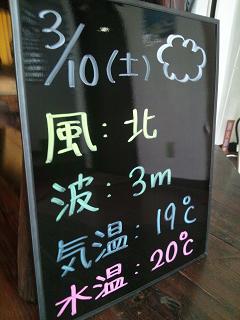 3/10(土)
風:北
波:3m
気温:19℃
水温:20℃